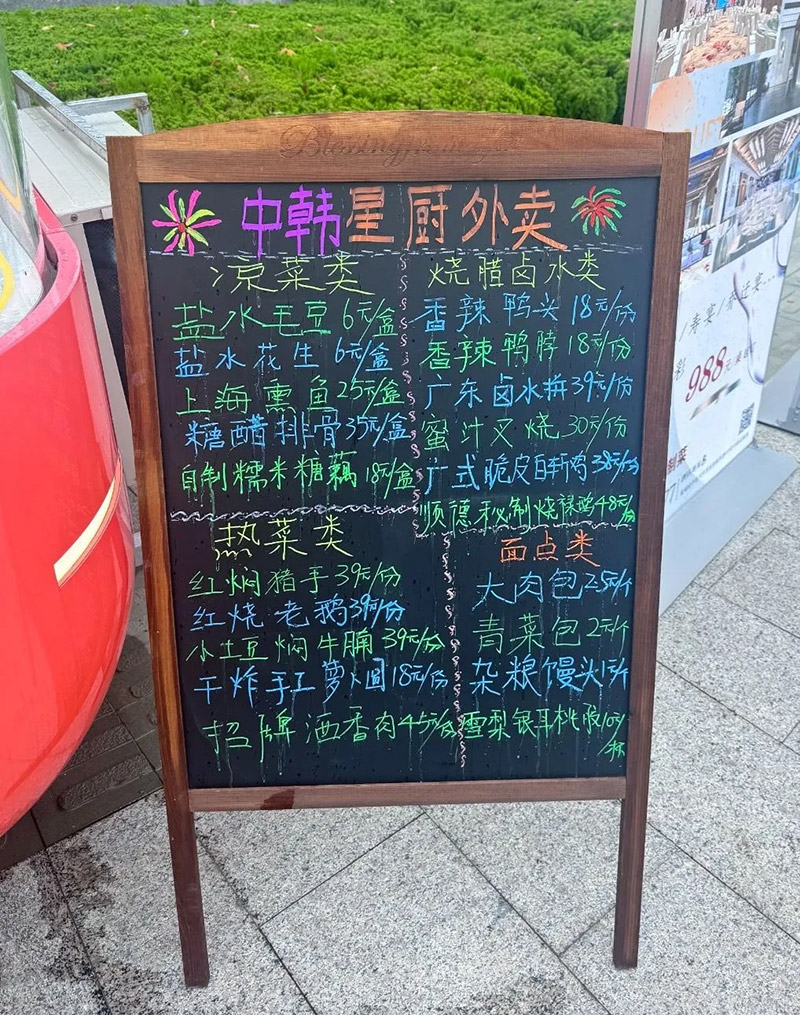 中韩星厨外卖
凉菜类
盐水毛豆6元/盒
盐水花生6元/盒
上海熏鱼25元/盒
糖醋排骨35元/盒
自制糯米糖藕18元/盒
烧腊卤水类
香辣鸭头18元/份
香辣鸭脖18元/份
广东卤水拼39元/份
蜜汁叉烧30元/份
广式脆皮白斩鸡38元/份
顺德秘制烧禄鸡48元/份
热菜类
红焖猪手39元/份
红烧老鹅39元/份
小土豆焖牛腩39元/份
干炸手工萝卜圆18元/份
招牌酒香肉45元/份
面点类
大肉包2.5元/个
青菜包2元/个
杂粮馒头1元/个
雪梨银耳桃胶10元/
杯
/寿宴/乔迁宴...
988元